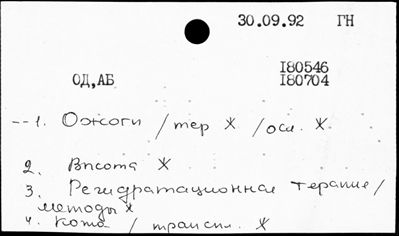 30.09.92 ГН
I80546
ОД,АБ I80704
--1. Ожоги /тер ж /осл. ж.
2. Высота ж
3. Регидратационная терапия/
методы ж
4. Кома / трансп. ж